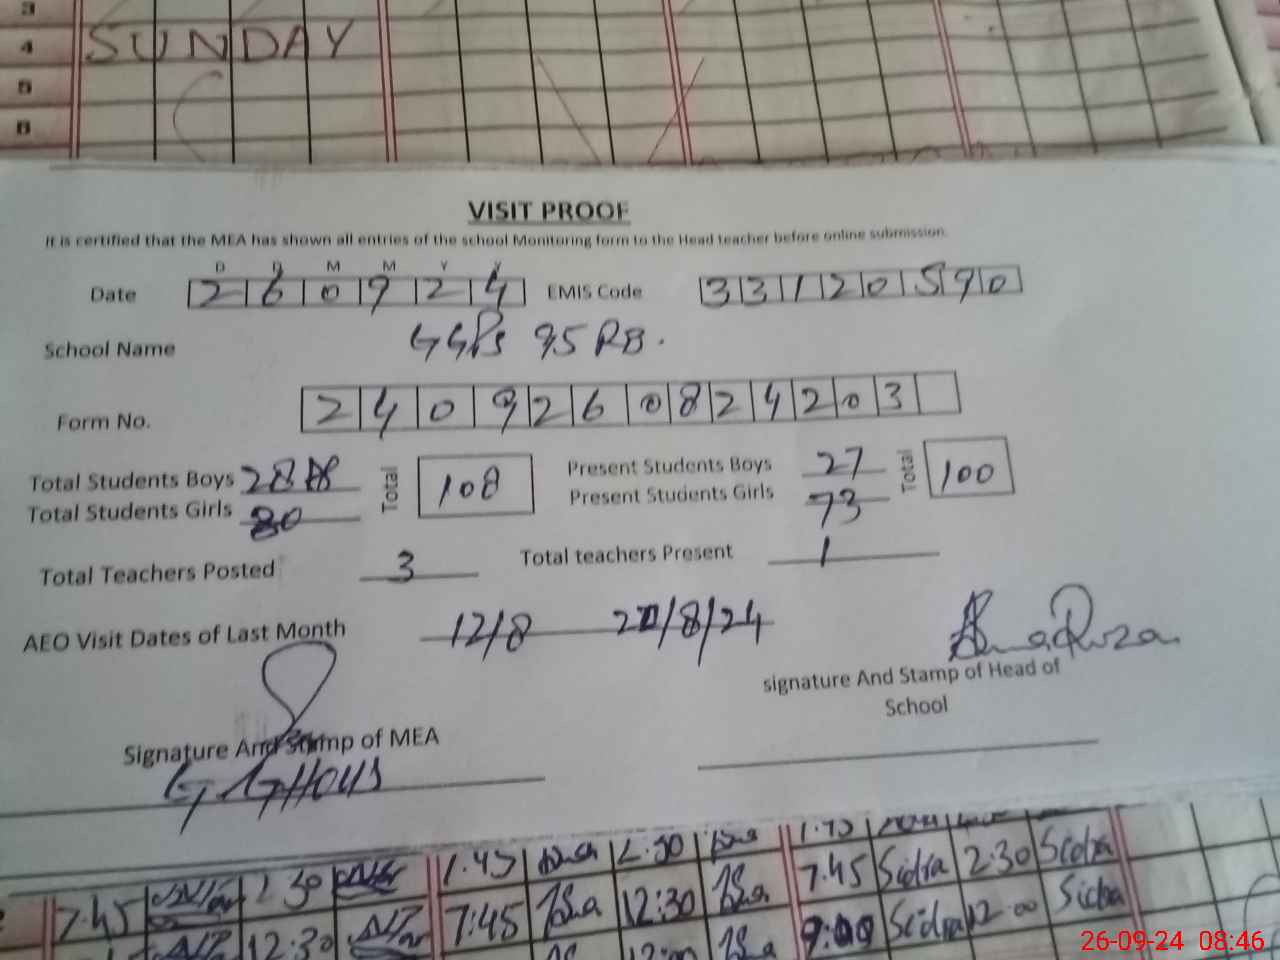 3
4 SUNDAY
5
6
VISIT PROOF
It is certified that the MEA has shown all entries of the school Monitoring form to the Head teacher before online submission.
D D M M Y Y
Date 2 6 0 9 2 4 EMIS Code 3 3 1 2 0 5 9 0
School Name GGPS 95 RB.
Form No. 2 4 0 9 2 6 0 8 2 4 2 0 3
Total Students Boys 28 Total 108 Present Students Boys 27 Total 100
Total Students Girls 80 Present Students Girls 73
Total Teachers Posted 3 Total teachers Present 1
AEO Visit Dates of Last Month 12/8 /8/24
signature And Stamp of Head of
School
Signature And Stamp of MEA
G. GHOUS
1.45
7.45 1.30 7:45 12:30 7.45 Sidra 2:30 Sidra
12:30 Sidra 12:00 Sidra
26-09-24 08:46